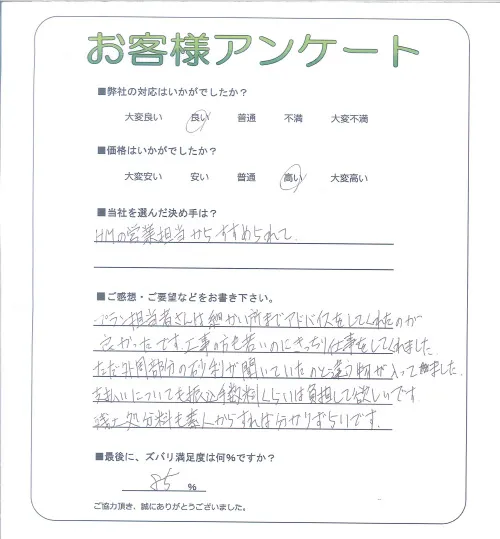 お客様アンケート
■弊社の対応はいかがでしたか？
大変良い 良い 普通 不満 大変不満
■価格はいかがでしたか？
大変安い 安い 普通 高い 大変高い
■当社を選んだ決め手は？
HMの営業担当からすすめられて.
■ご感想・ご要望などをお書き下さい。
プラン担当者さんは細かい所までアドバイスをしてくれたのが
良かったです 工事の方も若いのにきっちり仕事をしてくれました.
ただ外周部分の砂利が聞いていたのと違う物が入って来ました.
支払いについても振込手数料くらいは負担して欲しいです.
残土処分料も素人からすれば分かりずらいです.
■最後に、ズバリ満足度は何%ですか？
85 %
ご協力頂き、誠にありがとうございました。